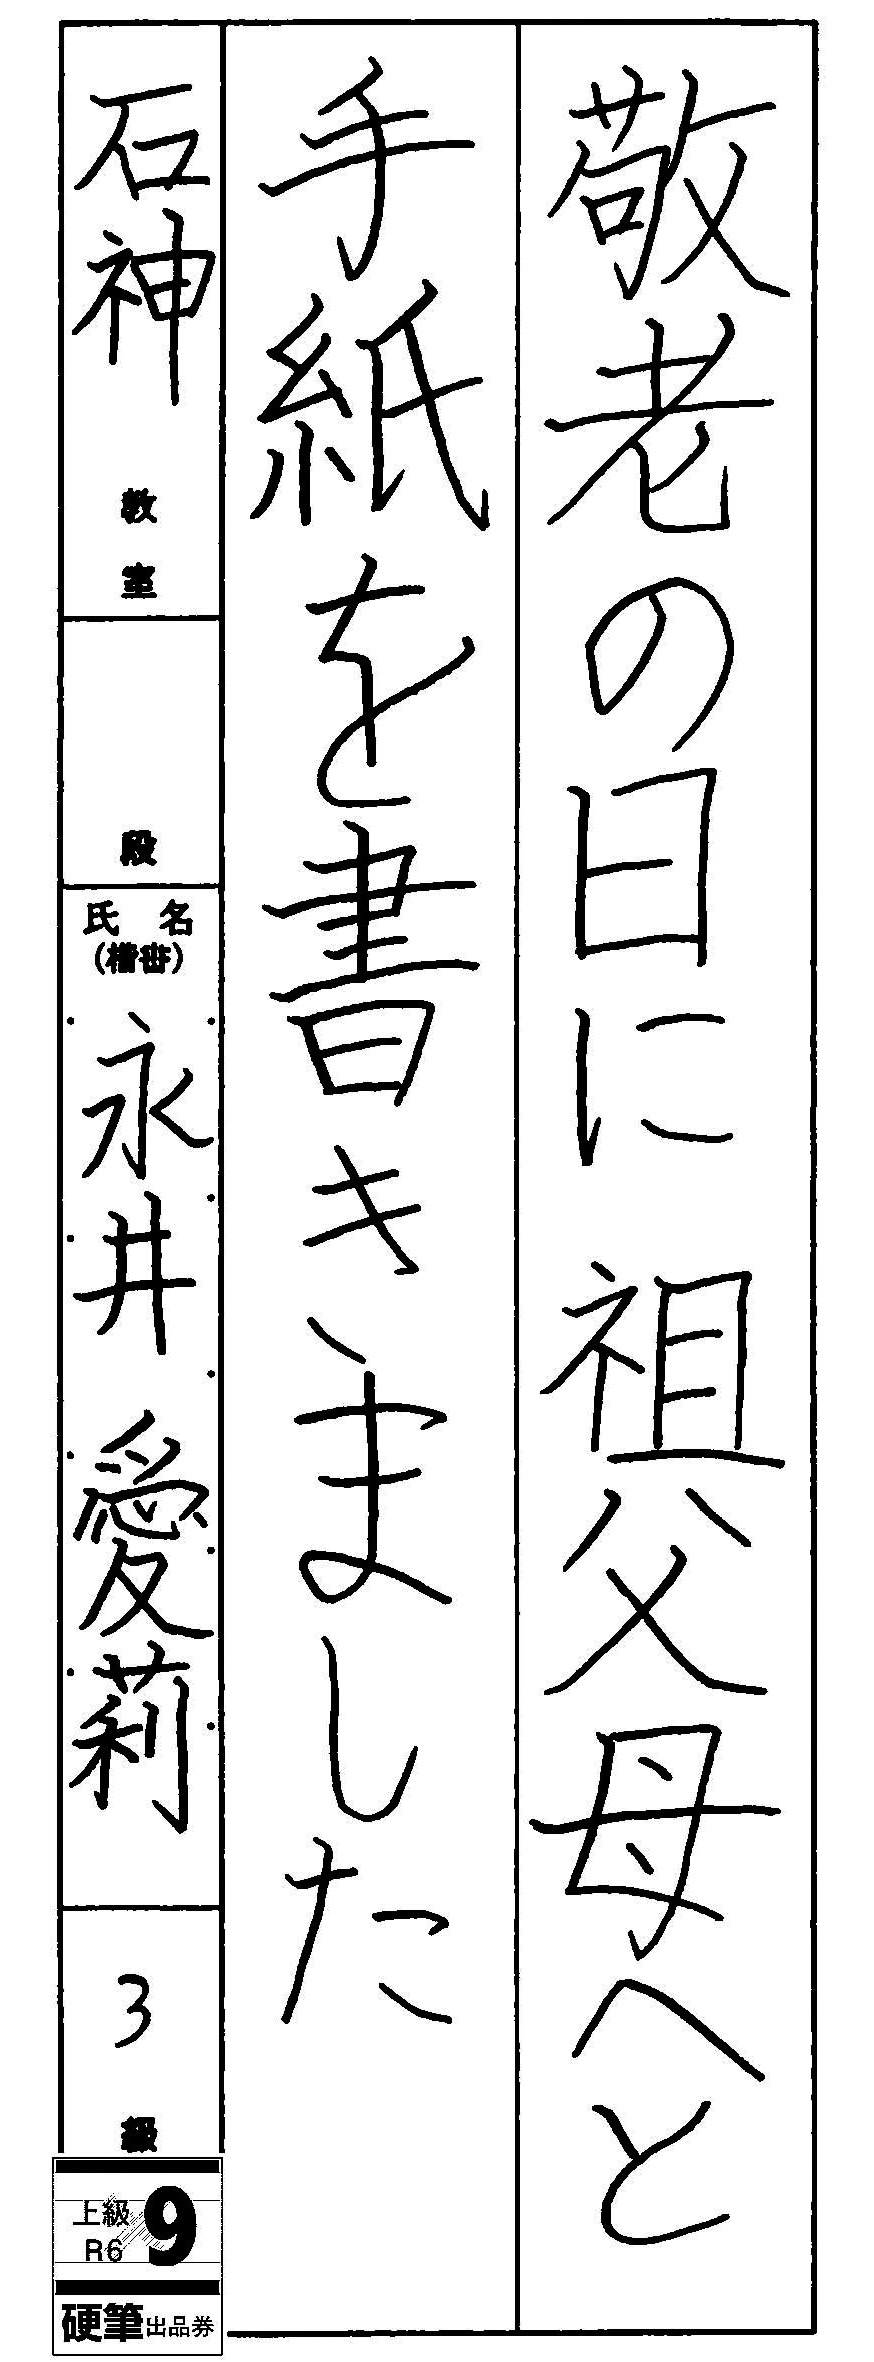 敬老の日に祖父母へと
手紙を書きました
石神教室
段
氏名
(楷書)
永井愛莉
3級
上級
R6
9
硬筆出品券